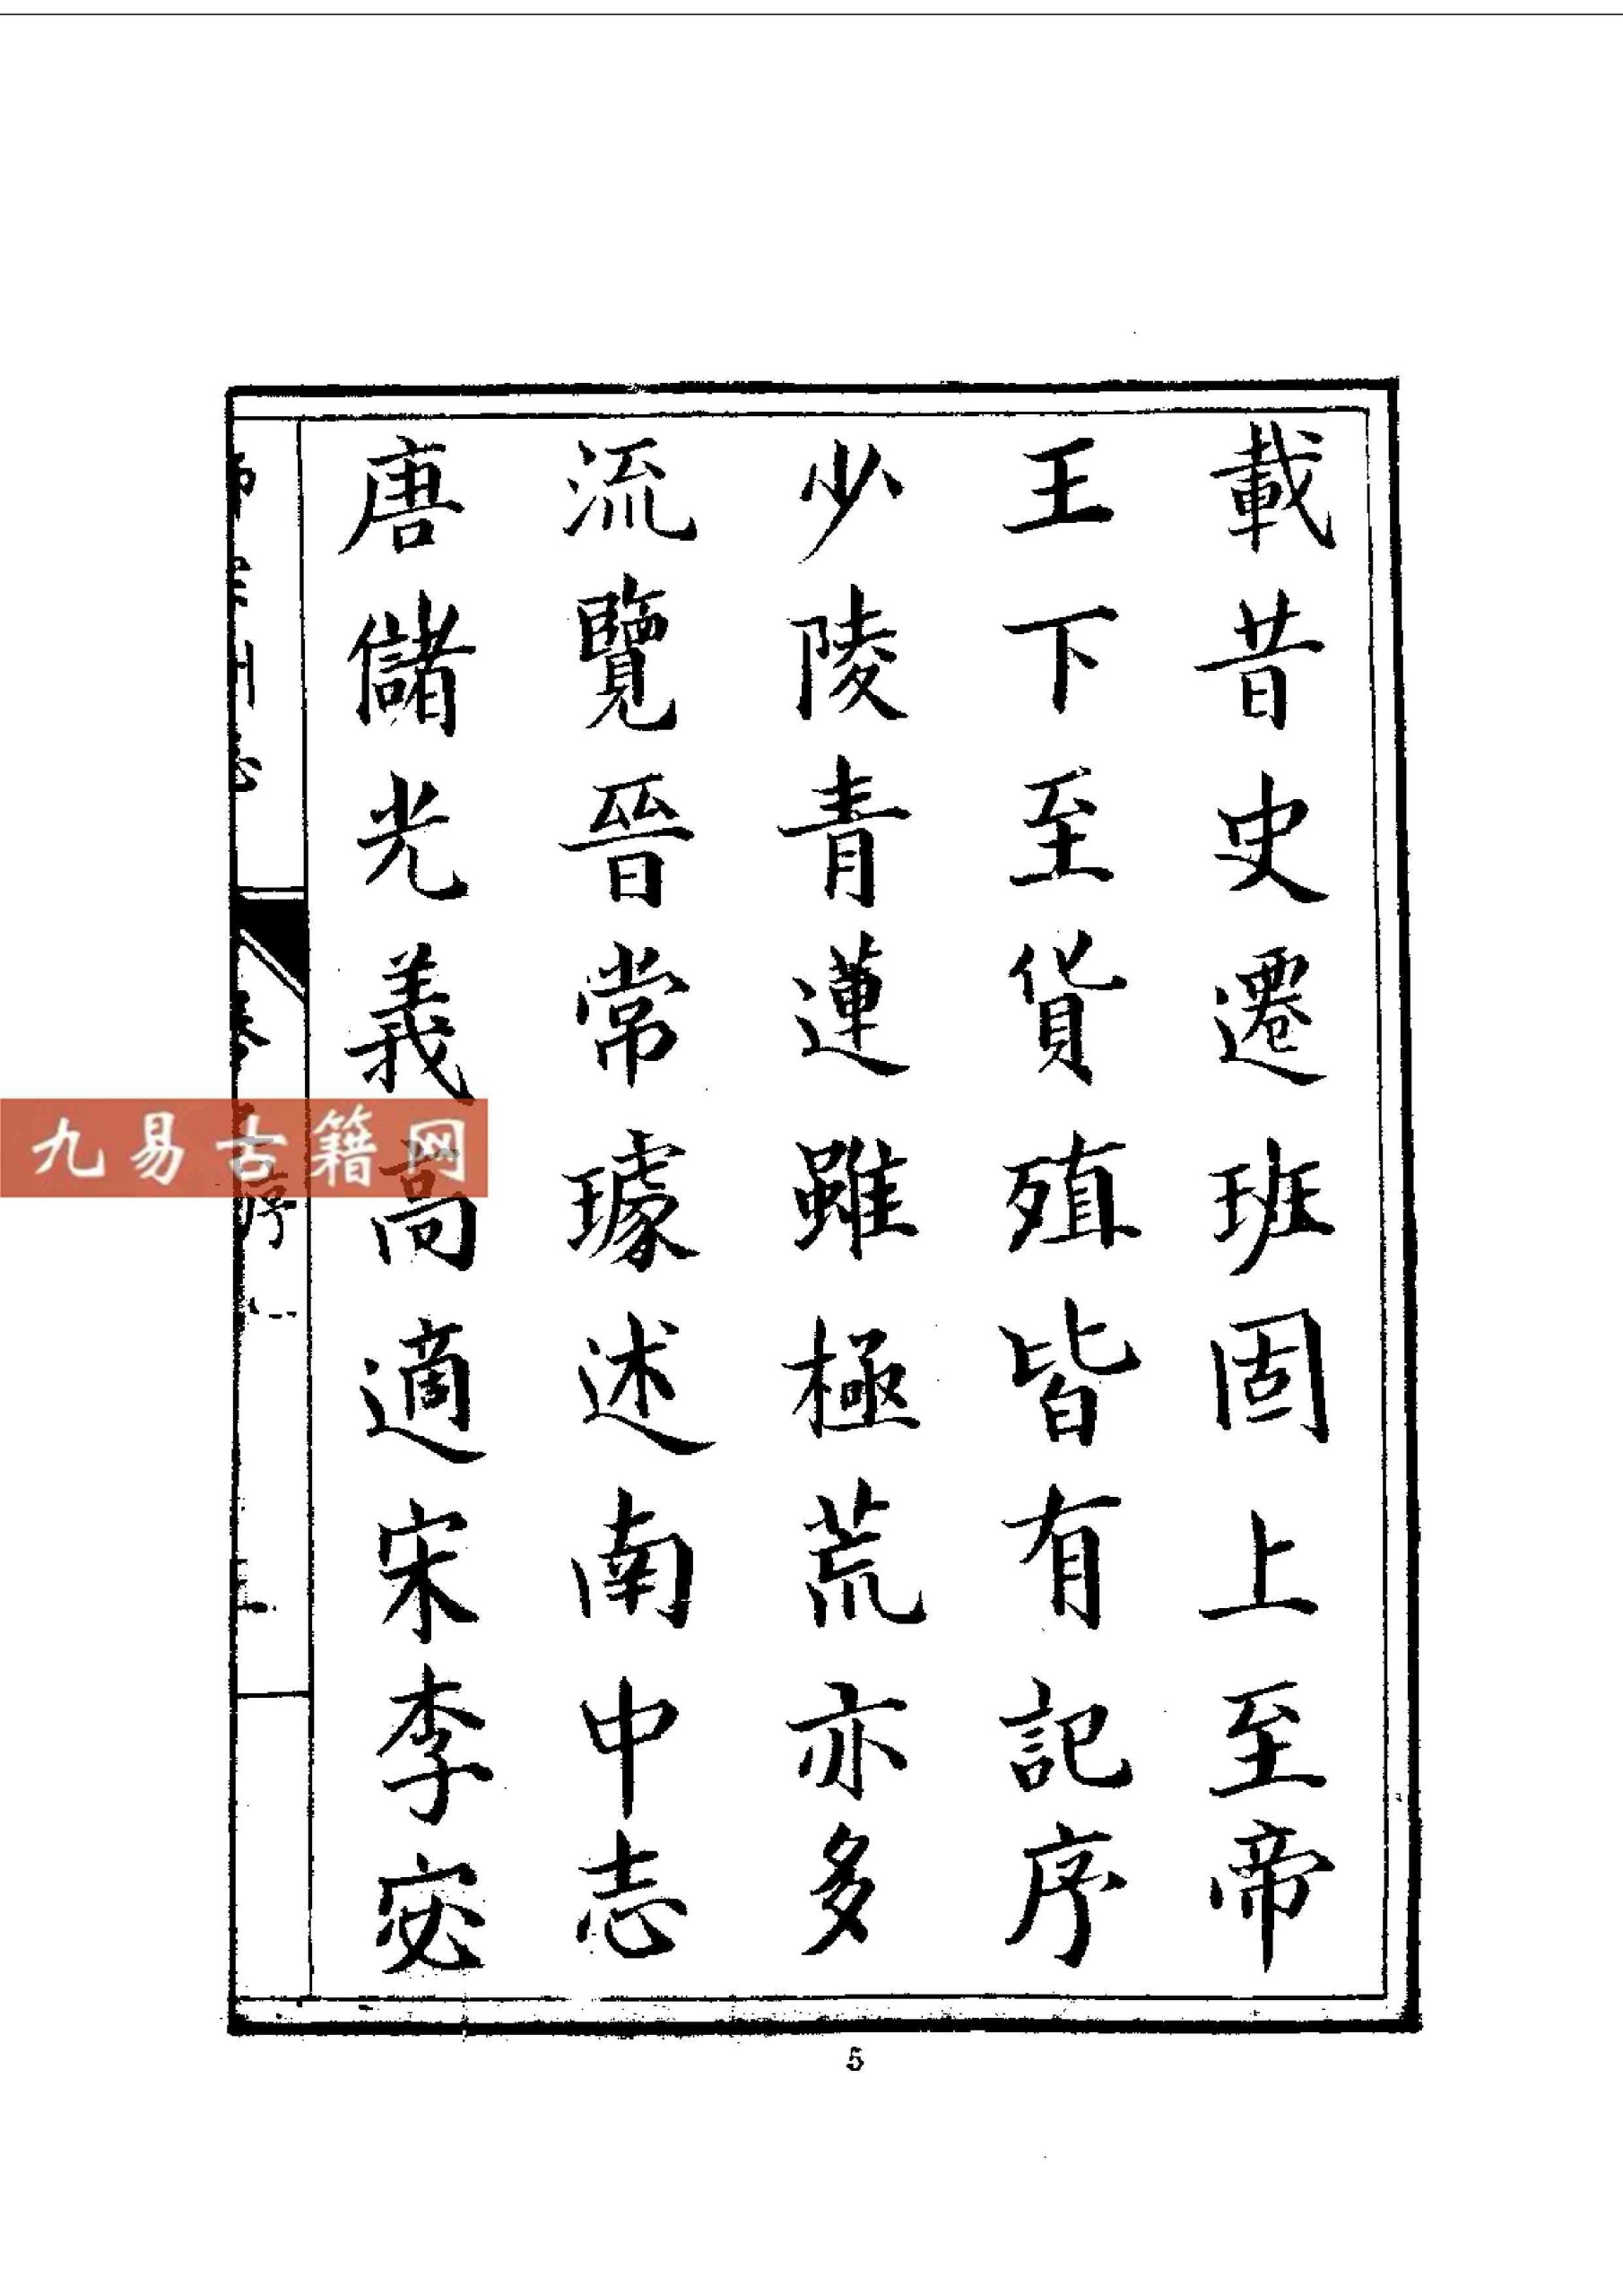 載昔史遷班固上至帝
王下至貨殖皆有記序
少陵青蓮雖極荒亦多
流覽晉常璩述南中志
唐儲光義高適宋李宓
序
九易古籍网
5